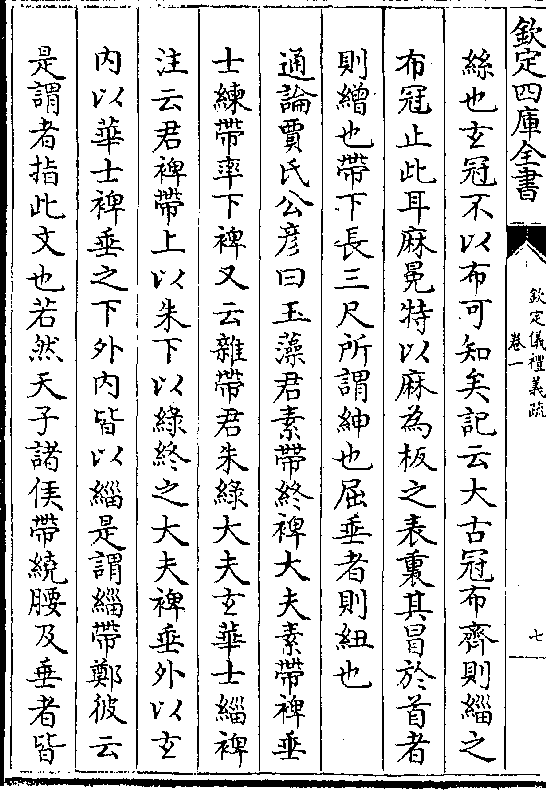 欽定四庫全書
欽定儀禮義疏
卷一
七
絲也玄冠不以布可知矣記云大古冠布齊則緇之
布冠止此耳麻冕特以麻為板之表裏其冒於首者
則繒也帶下長三尺所謂紳也屈垂者則紐也
通論賈氏公彥曰玉藻君素帶終裨大夫素帶裨垂
士練帶率下裨又云雜帶君朱綠大夫玄華士緇裨
注云君裨帶上以朱下以綠終之大夫裨垂外以玄
内以華士裨垂之下外内皆以緇是謂緇帶鄭彼云
是謂者指此文也若然天子諸侯帶繞腰及垂者皆